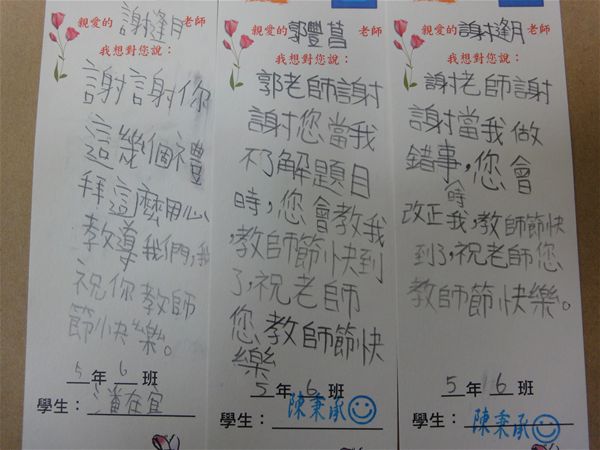 親愛的謝逢月老師
我想對您說：
謝謝你
這幾個禮
拜這麼用心
教導我們，我
祝你教師
節快樂。
5年6班
學生：潘在宜
親愛的郭豐菖老師
我想對您說：
郭老師謝
謝您當我
不了解題目
時，您會教我
，教師節快到
了，祝老師
您教師節快
樂
5年6班
學生：陳秉承
親愛的謝逢月老師
我想對您說：
謝老師謝
謝當我做
錯事時，您會
改正我，教師節快
到了，祝老師您
教師節快樂。
5年6班
學生：陳秉承